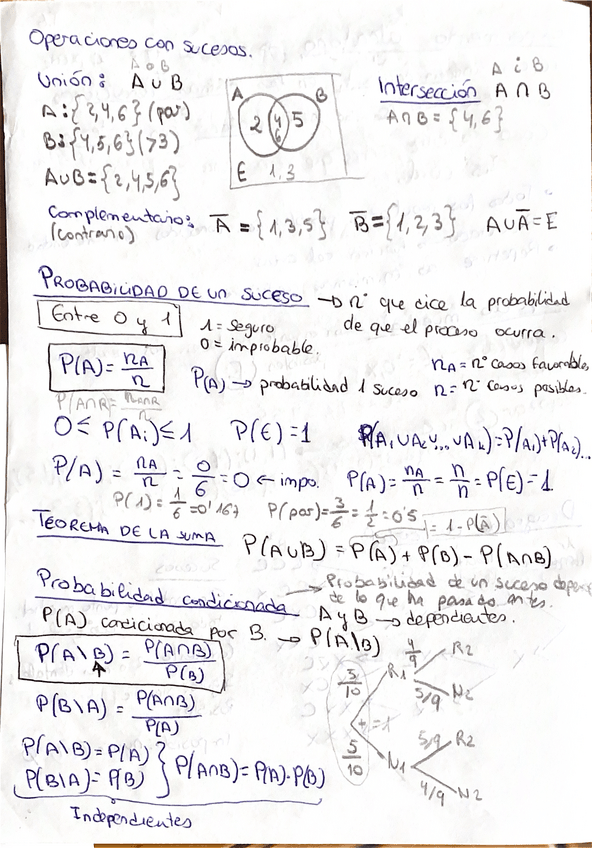 Operaciones con sucesos.
A o B
Unión: A ∪ B
A: {2,4,6} (par)
B: {4,5,6} (>3)
A∪B = {2,4,5,6}
A B
2 4 6 5
E 1,3
A i B
Intersección A ∩ B
A∩B = {4,6}
Complementario: A̅ = {1,3,5} B̅ = {1,2,3} A∪A̅ = E
(contrario)
PROBABILIDAD DE UN SUCESO → nº que dice la probabilidad
de que el proceso ocurra.
Entre 0 y 1
1 = seguro
0 = improbable.
P(A) = nA/n
P(A) → probabilidad 1 suceso
nA = nº casos favorables
n = nº casos posibles.
P(A∩B) = nA∩B/n
0 ≤ P(Ai) ≤ 1 P(E) = 1 P(A1 ∪ A2 ∪ ... ∪ Ak) = P(A1) + P(A2)...
P(A) = nA/n = 0/6 = 0 ← impo. P(A) = nA/n = n/n = P(E) = 1
P(1) = 1/6 = 0'167 P(par) = 3/6 = 1/2 = 0'5
= 1 - P(A̅)
TEOREMA DE LA SUMA P(A∪B) = P(A) + P(B) - P(A∩B)
Probabilidad condicionada → Probabilidad de un suceso depen
de lo que ha pasado antes.
A y B → dependientes.
P(A) condicionada por B. → P(A\B)
P(A\B) = P(A∩B)/P(B)
P(B\A) = P(A∩B)/P(A)
P(A\B) = P(A)
P(B\A) = P(B)
} P(A∩B) = P(A)·P(B)
Independientes
5/10 R1 4/9 R2
5/9 N2
+ = 1
5/10 N1 5/9 R2
4/9 N2